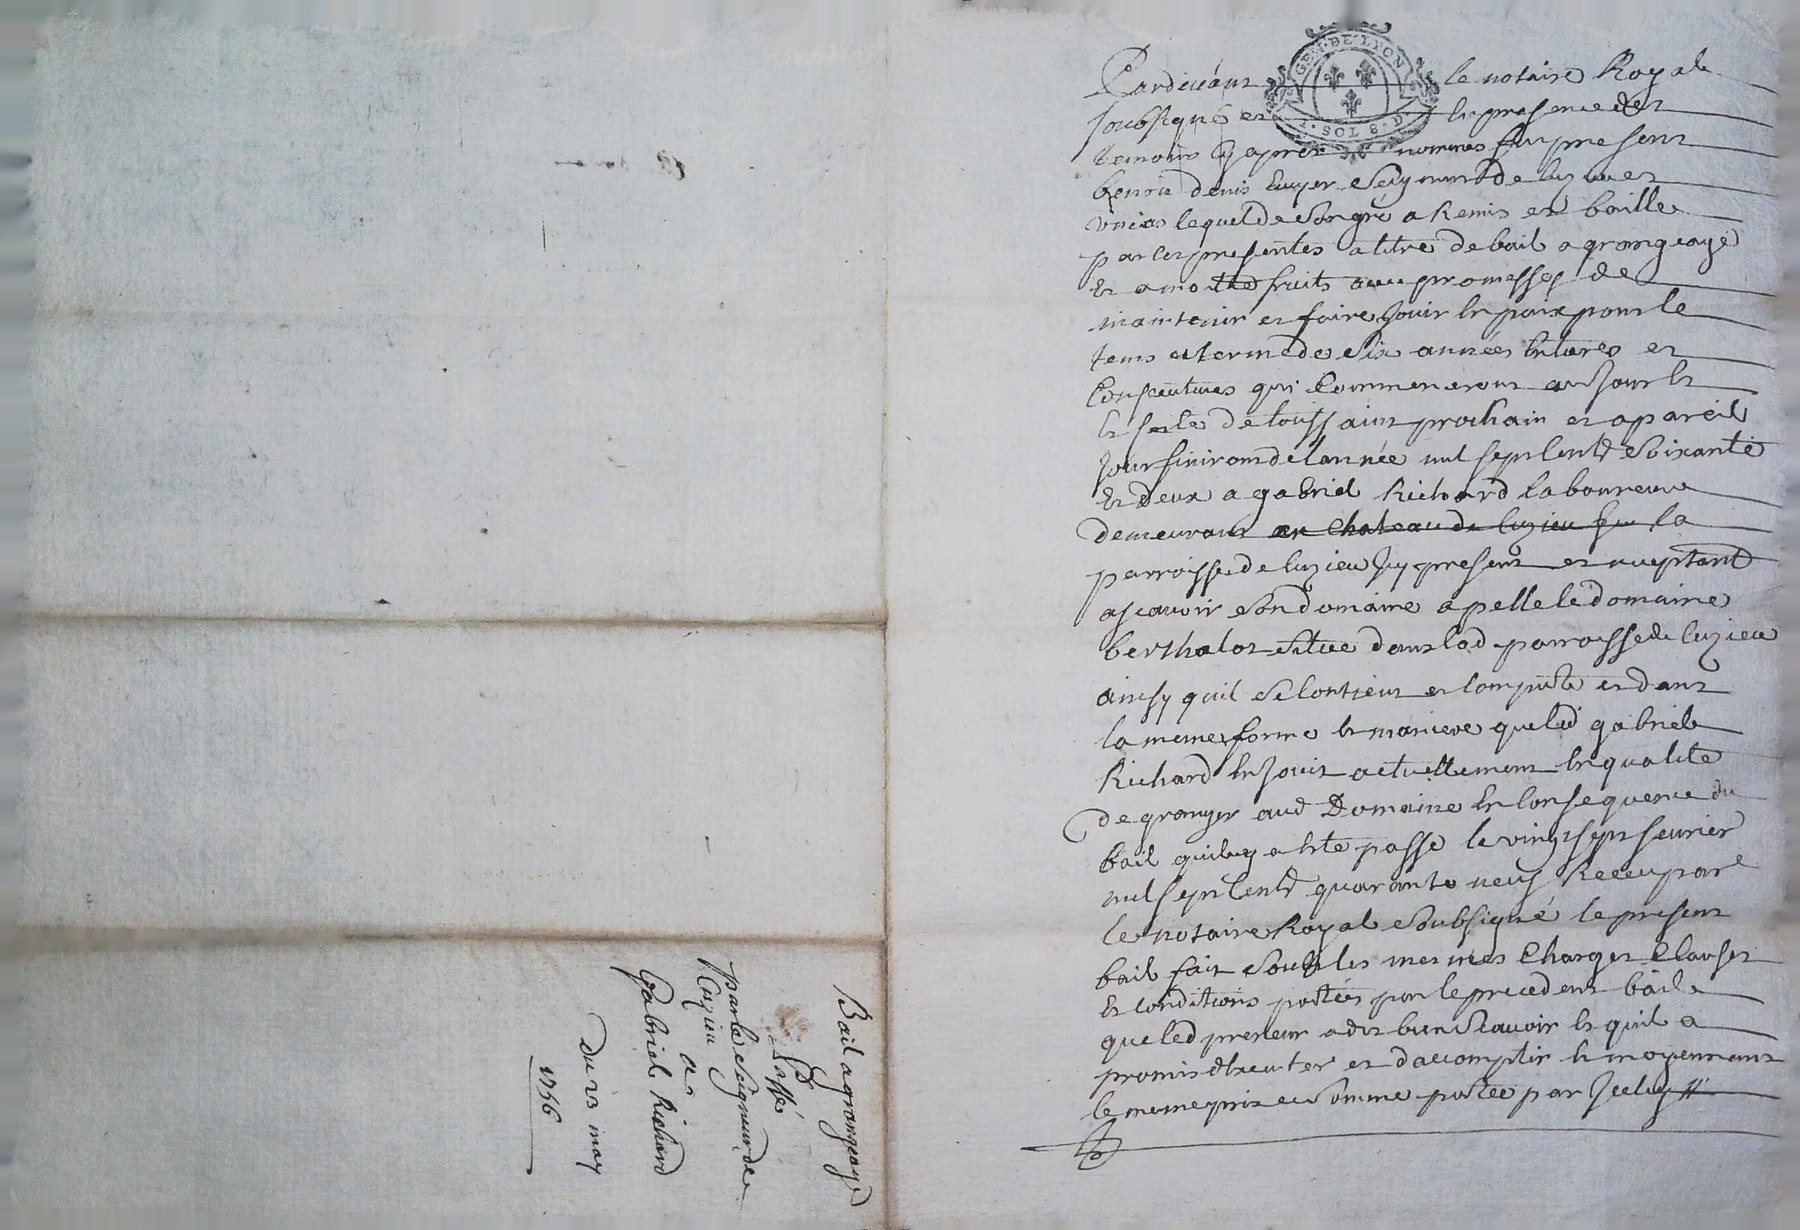 Pardevant le notaire Royal
soubsigné et en presence des
temoins cy apres nommés fut present
denis Ecuyer Seigneur de luzieu et
lequel de son gré a Remis et baille
par ces presentes a titre de bail a grangeage
et a moitié fruits avec promesses de
maintenir et faire Jouir en paix pour le
tems et terme de Six années entieres et
Consecutives qui Commenceront au Jour et
feste de toussaint prochain et a pareil
Jour finiront de l'année mil sept Cent Soixante
Et deux a gabriel Richard laboureur
demeurant au Chateau de luzieu sur la
parroisse de luzieu Icy present et acceptant
ascavoir Son domaine apellé le domaine
berthalot Situé dans lad parroisse de luzieu
ainsy quil Se Contient et Comporte et dans
la meme forme et maniere que led gabriel
Richard en Jouit actuellement en qualité
de granger aud Domaine en Consequence du
bail quiluy a eté passé le vingt sept fevrier
mil sept Cent quarante neuf Receu par
le notaire Royal Soubsigné le present
bail fait Soub les memes Charges Clauses
et Conditions portées par le precedent bail
que led preneur a dit bien Scavoir et quil a
promis dExecuter et daccomplir et moyennant
le meme prix et Somme portée par Iceluy
Bail a grangeage
Passé
par le Seigneur de
Luzieu
a
Gabriel Richard
Du 23 may
1756
GEN. DE LYON
1 SOL 8 D.